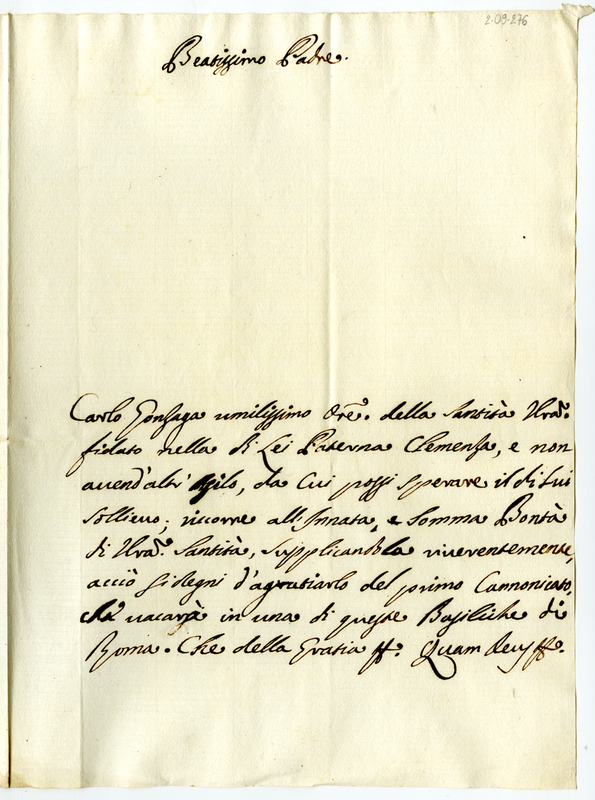 2-09-276
Beatissimo Padre.
Carlo Gonzaga umilissimo Ore. della Santità Vra.
fidato nella di Lei Paterna Clemenza, e non
avend'altr' Asilo, da Cui possi sperare il di lui
sollievo; ricorre all'Innata, e somma Bontà
di Vra. Santità, supplicandola riverentemente,
acciò si degni d'agratiarlo del primo Cannonicato,
che vacarà in una di queste Basiliche di
Roma. Che della Gratia ff. Quam Deus ff.